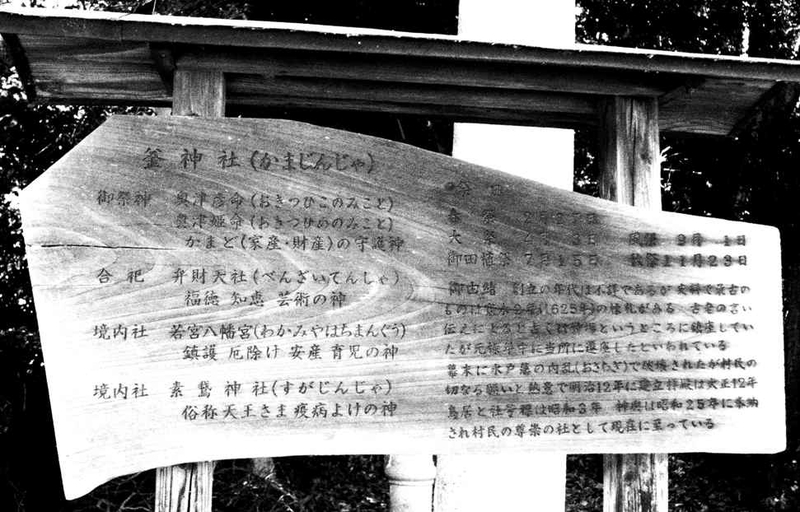 釜神社(かまじんじゃ)
御祭神 奥津彦命(おきつひこのみこと)
奥津姫命(おきつひめのみこと)
かまど(家産・財産)の守護神
合祀 弁財天社(べんざいてんしゃ)
福徳 知恵 芸術の神
境内社 若宮八幡宮(わかみやはちまんぐう)
鎮護 厄除け 安産 育児の神
境内社 素鵞神社(すがじんじゃ)
俗称天王さま疫病よけの神
祭日
春祭 2月
大祭 月 3日 風祭 9月 1日
御田植祭 7月15日 秋祭11月23日
御由緒 創立の年代は不詳であるが実績で最古の
ものは寛永2年(1625年)の棟札がある 古老の言い
伝えによると というところに鎮座してい
たが元禄年中に当所に遷座したといわれている
幕末に水戸藩の内乱 で破壊されたが村民の
切なる願いと熱意で明治12年に建立拝殿は大正12年
鳥居と社号標は昭和3年 神輿は昭和25年に奉納
され村民の尊崇の社として現在に至っている